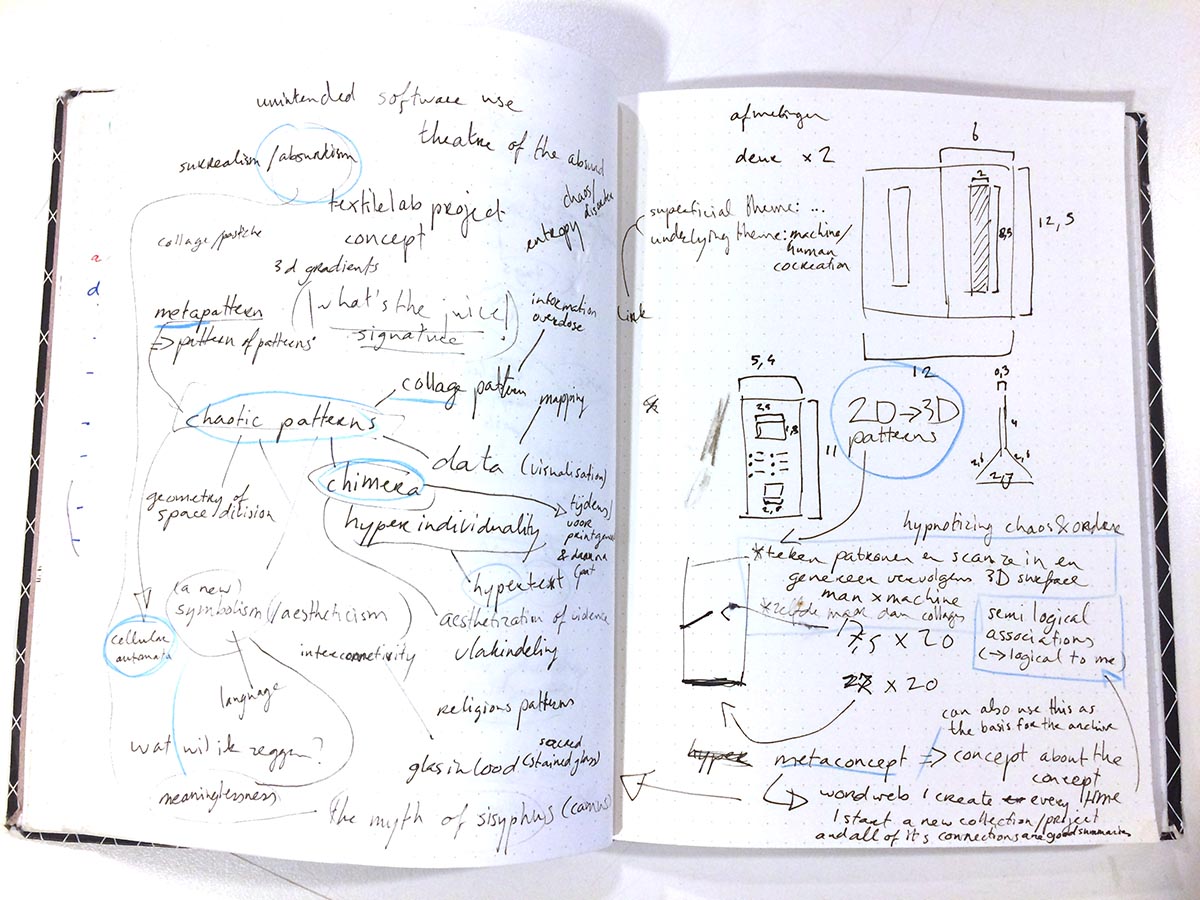 unintended software use
theatre of the absurd
surrealism/absurdism
chaos/
disorder
entropy
textilelab project
concept
collage/pastiche
3d gradients
metapattern
=> pattern of patterns
(what's the juice!)
signature
information
overdose
collage pattern
mapping
chaotic patterns
data (visualisation)
chimera
geometry of
space division
hyper individuality
tijdens/
voor
& daarna
hypertext
(a new)
symbolism(/aestheticism)
aesthetization of violence
cellular
automata
interconnectivity
vlakindeling
language
religious patterns
wat wil ik zeggen?
sacred
glas in lood (stained glass)
meaninglessness
the myth of sisyphus (camus)
afmetingen
deur x2
6
2
8,5
12,5
superficial theme: ...
underlying theme: machine/
human
cocreation
link
12
5,4
11
2D → 3D
patterns
0,3
4
hypnotizing chaos & order
*teken patronen en scan ze in en
genereer vervolgens 3D surface
man x machine
*zelfde maar dan collages
semi logical
associations
(→ logical to me)
x 20
x 20
can also use this as
the basis for the archive
hyper
metaconcept => concept about the
concept
wordweb I create every time
I start a new collection/project
and all of it's connections are good summaries